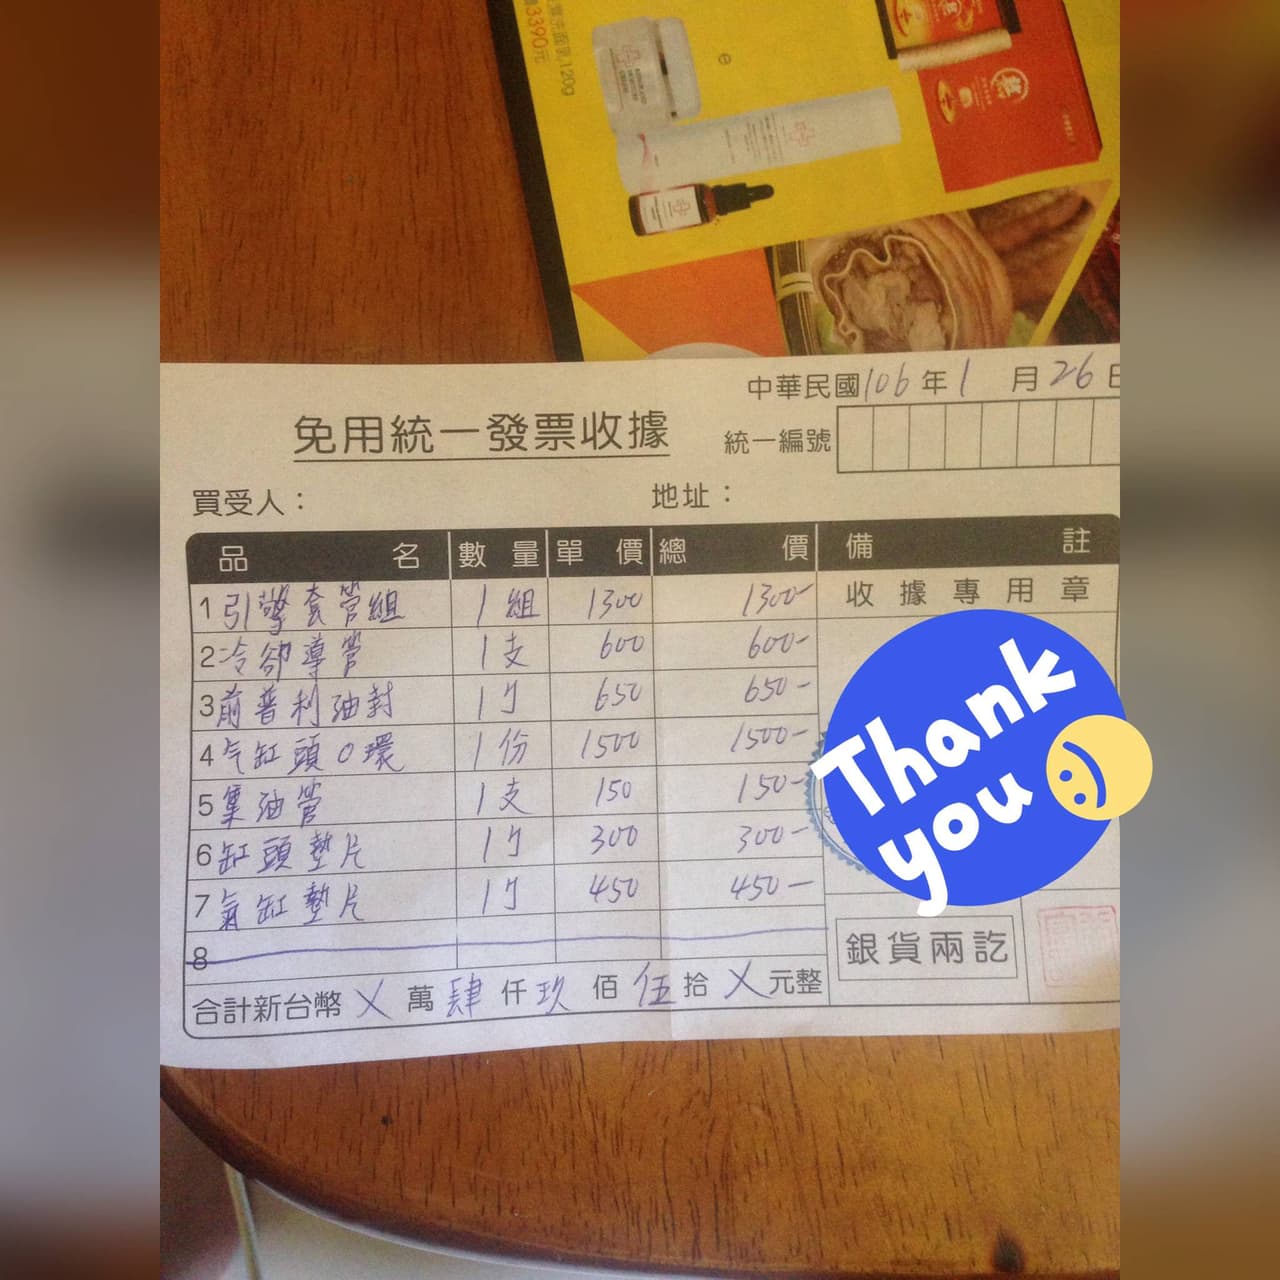 3390元
120g
中華民國106年1月26日
免用統一發票收據
統一編號
買受人：
地址：
品名 數量 單價 總價 備註
1 引擎套管組 1組 1300 1300-
收據專用章
2 冷卻導管 1支 600 600-
3 前普利油封 1个 650 650-
4 气缸頭O環 1份 1500 1500-
5 集油管 1支 150 150-
6 缸頭墊片 1个 300 300-
7 氣缸墊片 1个 450 450-
8
銀貨兩訖
合計新台幣 X 萬 肆 仟 玖 佰 伍 拾 X 元整
Thank you